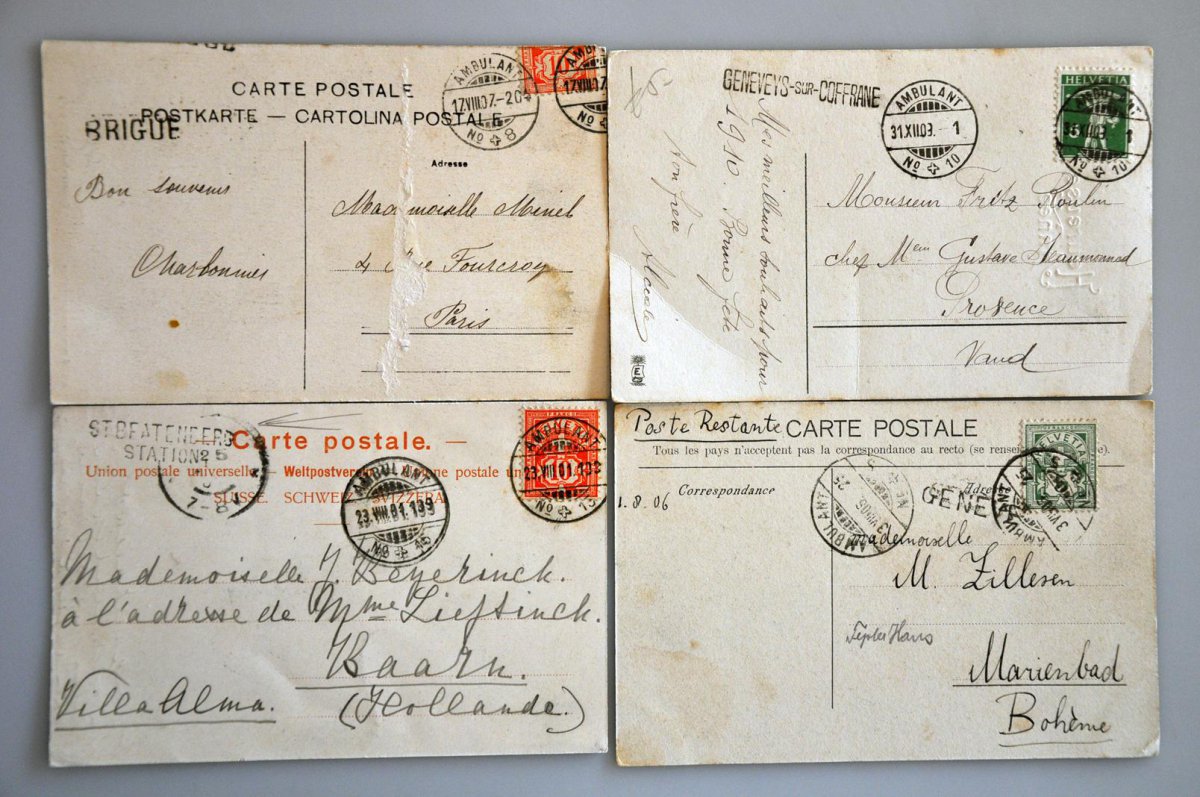 CARTE POSTALE
POSTKARTE — CARTOLINA POSTALE
BRIGUE
Adresse
AMBULANT
17.VIII.07.-20
No 8
10
Bon souvenir
Mademoiselle Minel
4 Rue Fourcroy
Paris
GENEVEYS-SUR-COFFRANE
AMBULANT
31.XII.09.-1
No 10
HELVETIA
AMBULANT
No 10
Mes meilleurs souhaits pour
1910. Bonne fête
Ton frère
Monsieur Fritz Roulin
chez Mr Gustave
Provence
Vaud
ST.BEATENBERG
STATION
Carte postale.
Union postale universelle — Weltpostverein
SUISSE. SCHWEIZ. SVIZZERA.
AMBULANT
23.VIII.01.-19
No 15
FRANCO
10
AMBULANT
23.VIII.01.
Mademoiselle J. Beyerinck.
à l'adresse de Mme Lieftinck.
Baarn.
Villa Alma.
(Hollande.)
Poste Restante
CARTE POSTALE
Tous les pays n'acceptent pas la correspondance au recto
Correspondance
1.8.06
AMBULANT
VIII.06
HELVETIA
AMBULANT
GENE
Mademoiselle
M. Zillesen
Marienbad
Bohème